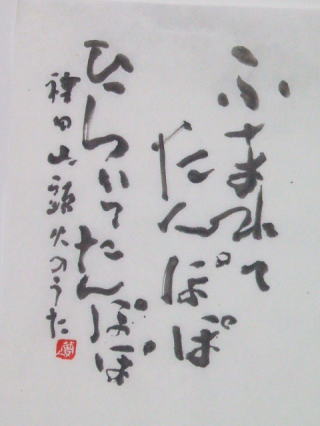 ふまれて
たんぽぽ
ひらいてたんぽぽ
種田山頭火のうた